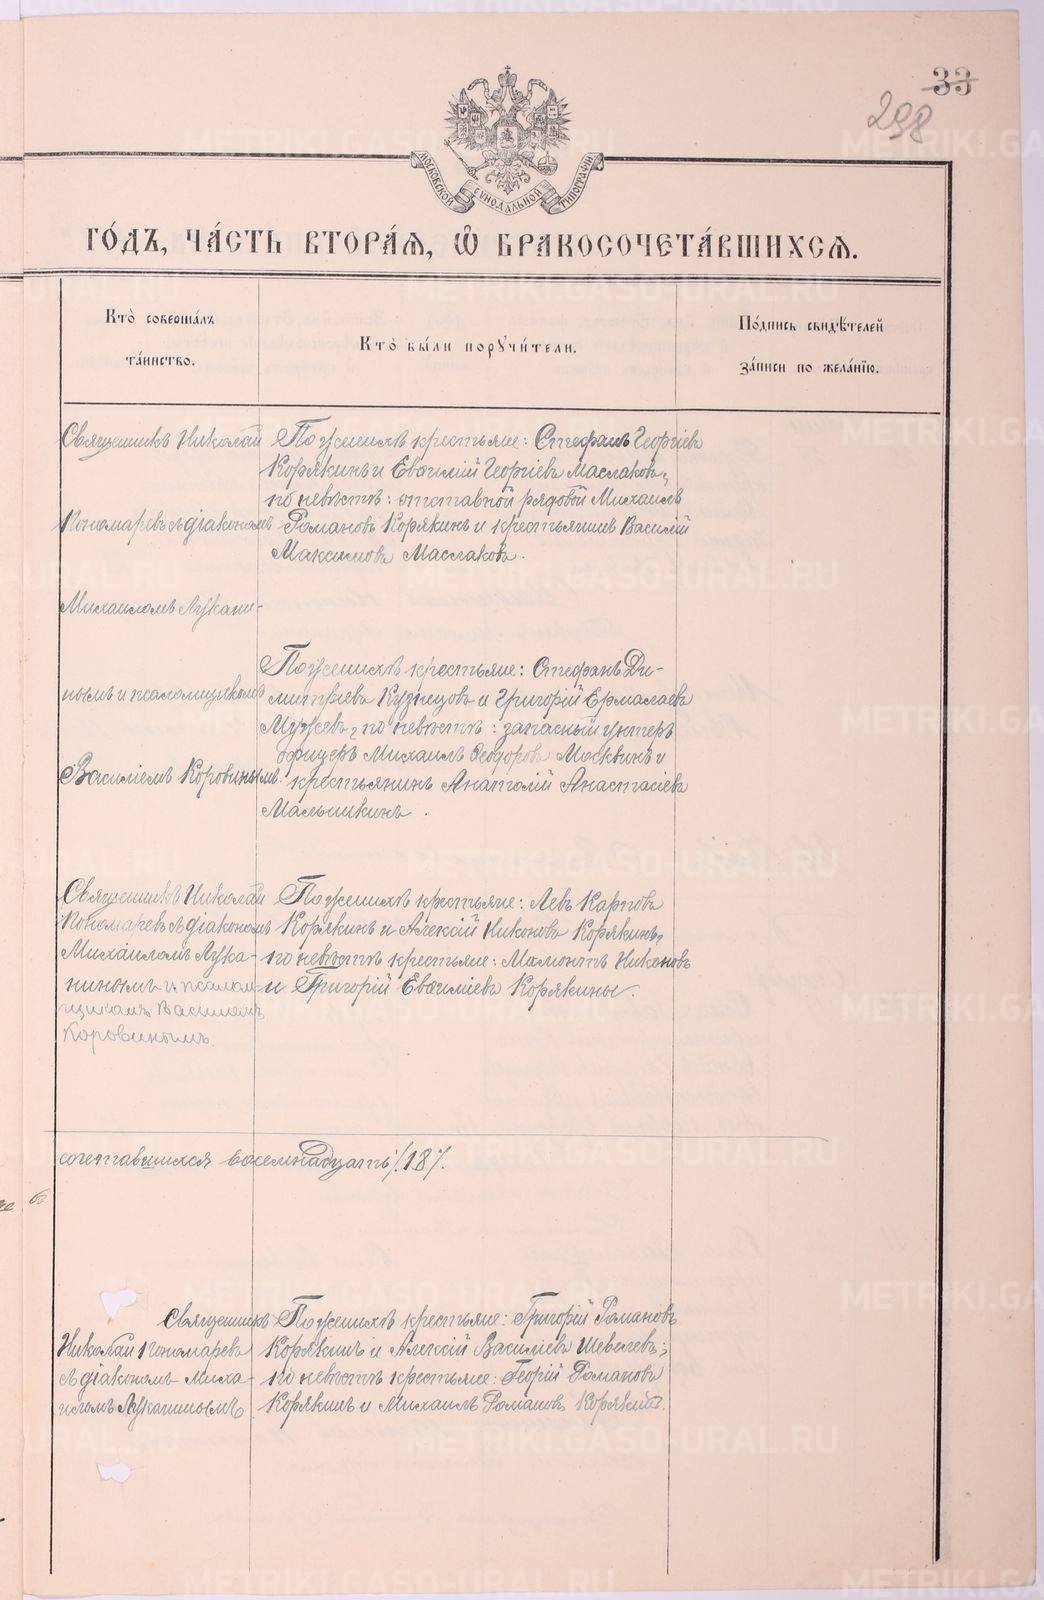 33
298
МОСКОВСКОЙ СѴНОДАЛЬНОЙ ТИПОГРАФІИ
ГО́ДЪ, ЧА́СТЬ ВТОРА́Ѧ, Ѽ БРАКОСОЧЕТА́ВШИХСѦ.
Кто̀ соверша́лъ
та́инство.
Кто̀ бы́ли порꙋчи́тели.
По́дпись свидѣ́телей
за́писи по жела́нїю.
Священникъ Николай
Кономаревъ съ діакономъ
Михаиломъ Лукани-
нымъ и псаломщикомъ
Василіемъ Коровинымъ.
По женихѣ крестьяне: Стефанъ Георгіевъ
Корякинъ и Евѳимій Георгіевъ Маслаковъ,
по невѣстѣ: отставной рядовой Михаилъ
Романовъ Корякинъ и крестьянинъ Василій
Максимовъ Маслаковъ.
По женихѣ крестьяне: Стефанъ Ди-
митріевъ Кузнецовъ и Григорій Ермалаевъ
Мужевъ, по невѣстѣ: запасный унтеръ
офицеръ Михаилъ Ѳеодоровъ Москвинъ и
крестьянинъ Анатолій Анастасіевъ
Малышкинъ.
Священникъ Николай
Кономаревъ съ діакономъ
Михаиломъ Лука-
нинымъ и псалом-
щикомъ Василіемъ
Коровинымъ.
По женихѣ крестьяне: Левъ Карповъ
Корякинъ и Алексій Никоновъ Корякинъ,
по невѣстѣ крестьяне: Мамонтъ Никоновъ
и Григорій Евѳиміевъ Корякины.
сочетавшихся восемнадцать /18/.
Священникъ
Николай Кономаревъ
съ діакономъ Миха-
иломъ Луканинымъ
По женихѣ крестьяне: Григорій Романовъ
Корякинъ и Алексій Василіевъ Шевелевъ;
по невѣстѣ крестьяне: Георгій Романовъ
Корякинъ и Михаилъ Романовъ Корякинъ.
METRIKI.GASO-URAL.RU